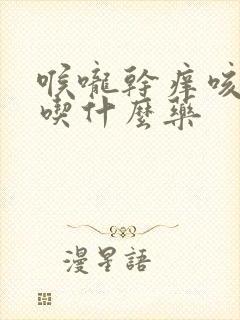 喉嚨幹癢咳
喫什麼藥
漫星語